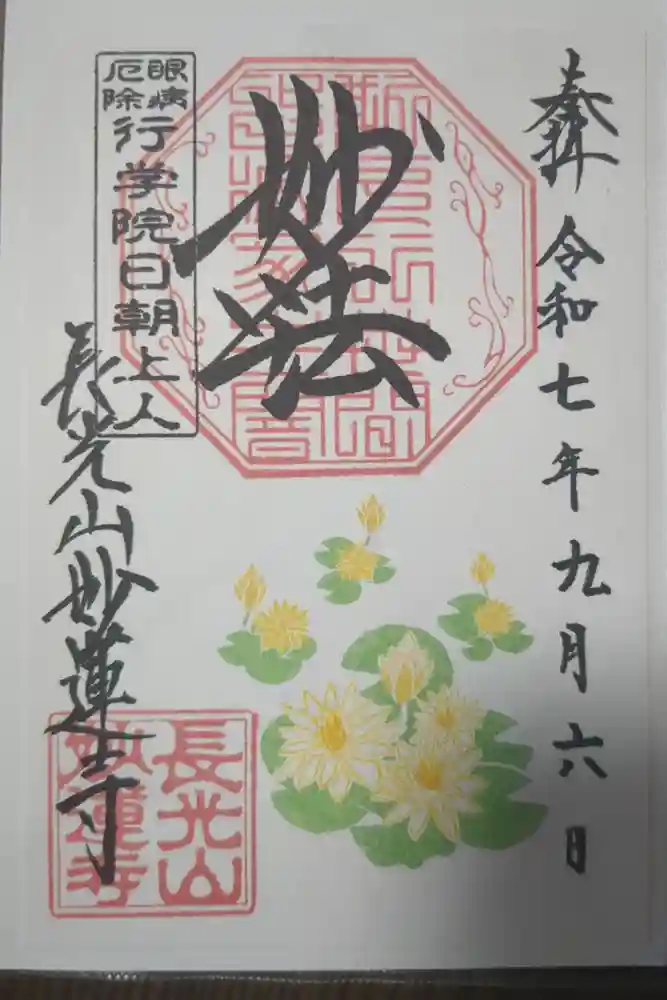 奉拝
令和七年九月六日
妙法
眼病
厄除
行学院日朝上人
長光山妙蓮寺
長光山
妙蓮寺